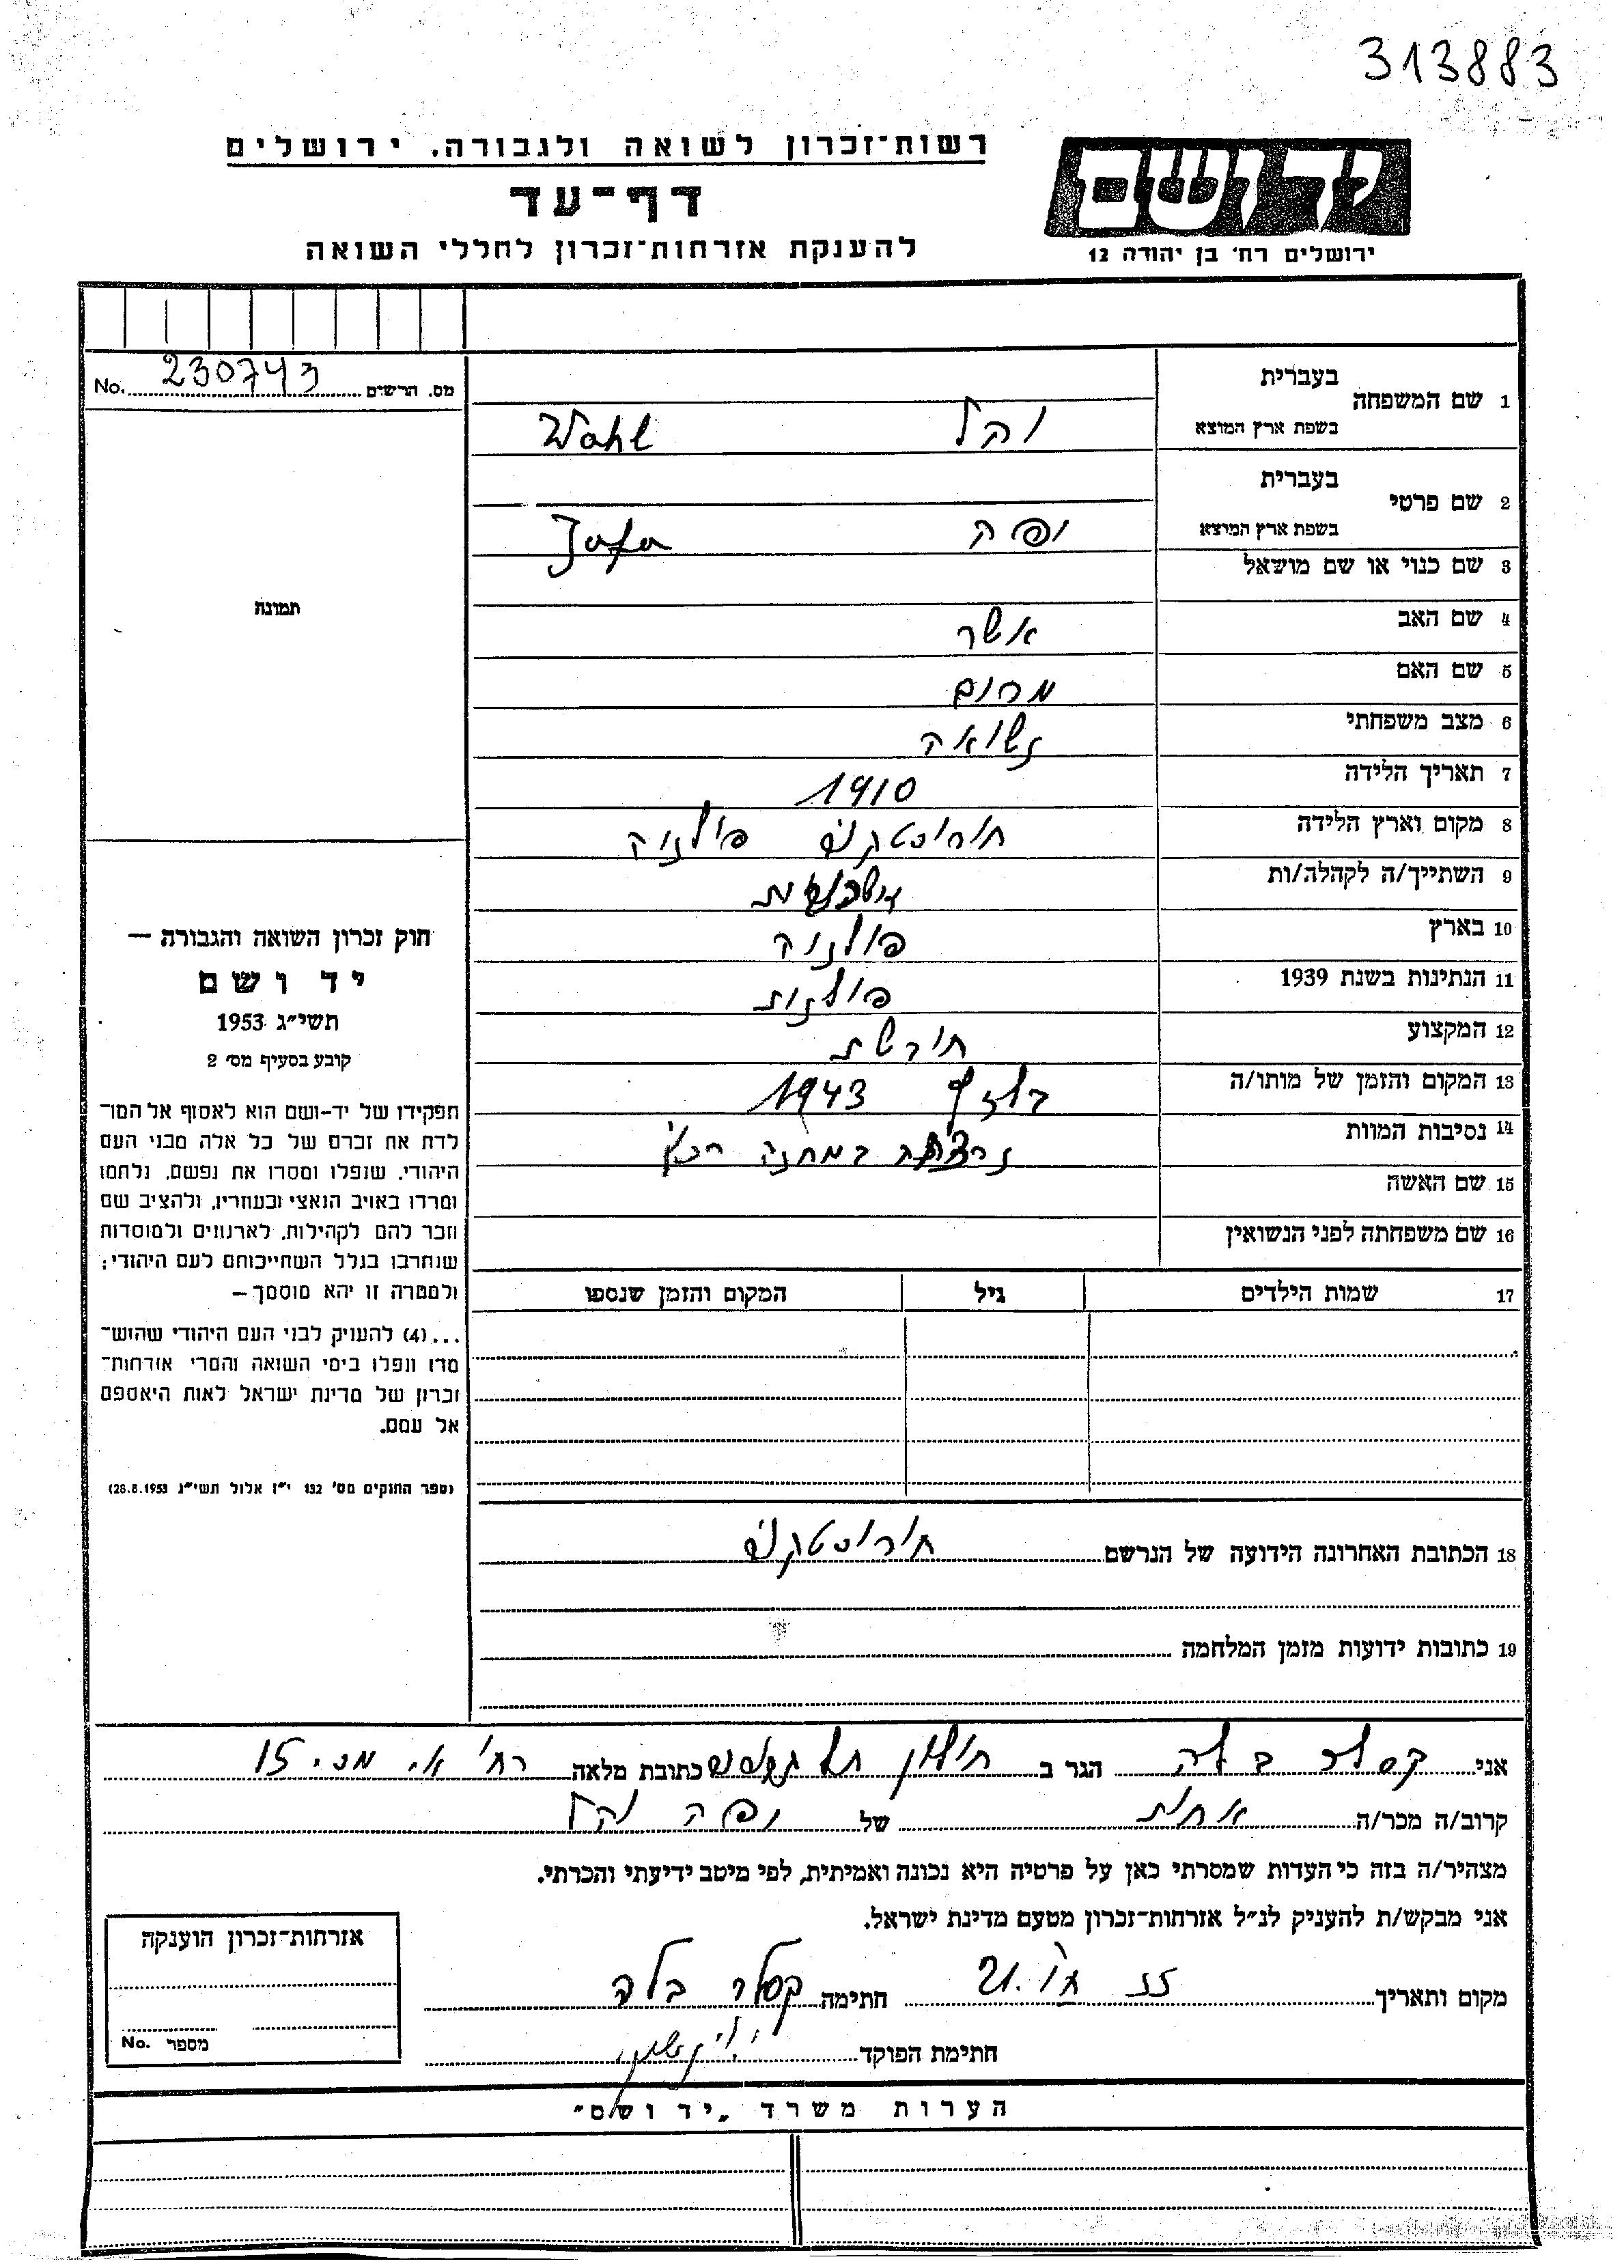 313883
רשות־זכרון לשואה ולגבורה. ירושלים
דף־עד
להענקת אזרחות־זכרון לחללי השואה
ידושם
ירושלים רח׳ בן יהודה 12
מס. הרשים 230743 No.
1 שם המשפחה בעברית
בשפת ארץ המוצא והל Wahl
2 שם פרטי בעברית
בשפת ארץ המוצא יפה Jafa
3 שם כנוי או שם מושאל
4 שם האב אשר
5 שם האם מרים
6 מצב משפחתי נשואה
7 תאריך הלידה 1910
8 מקום וארץ הלידה חורוסטקוב פולניה
9 השתייך/ה לקהלה/ות
10 בארץ פולניה
11 הנתינות בשנת 1939 פולנית
12 המקצוע תופרת
13 המקום והזמן של מותו/ה בלזץ 1943
14 נסיבות המוות במחנה
15 שם האשה
16 שם משפחתה לפני הנשואין
17 שמות הילדים גיל המקום והזמן שנספו
תמונה
חוק זכרון השואה והגבורה —
יד ושם
תשי״ג 1953
קובע בסעיף מס׳ 2
תפקידו של יד-ושם הוא לאסוף אל המו־
לדת את זכרם של כל אלה מבני העם
היהודי, שנפלו ומסרו את נפשם, נלחמו
ומרדו באויב הנאצי ובעוזריו, ולהציב שם
וזכר להם לקהילות, לארגונים ולמוסדות
שנחרבו בגלל השתייכותם לעם היהודי;
ולמטרה זו יהא מוסמך —
...(4) להעניק לבני העם היהודי שהוש־
מדו ונפלו בימי השואה והמרי אזרחות־
זכרון של מדינת ישראל לאות היאספם
אל עמם.
(ספר החוקים מס׳ 132 י״ז אלול תשי״ג 28.8.1953)
18 הכתובת האחרונה הידועה של הנרשם חורוסטקוב
19 כתובות ידועות מזמן המלחמה
אני קסלר בלה הגר ב חולון כתובת מלאה רח׳ 15
קרוב/ה מכר/ה אחות של יפה והל
מצהיר/ה בזה כי העדות שמסרתי כאן על פרטיה היא נכונה ואמיתית, לפי מיטב ידיעתי והכרתי.
אני מבקש/ת להעניק לנ״ל אזרחות־זכרון מטעם מדינת ישראל.
מקום ותאריך חתימה קסלר בלה
חתימת הפוקד
אזרחות־זכרון הוענקה
מספר No.
הערות משרד „יד ושם״